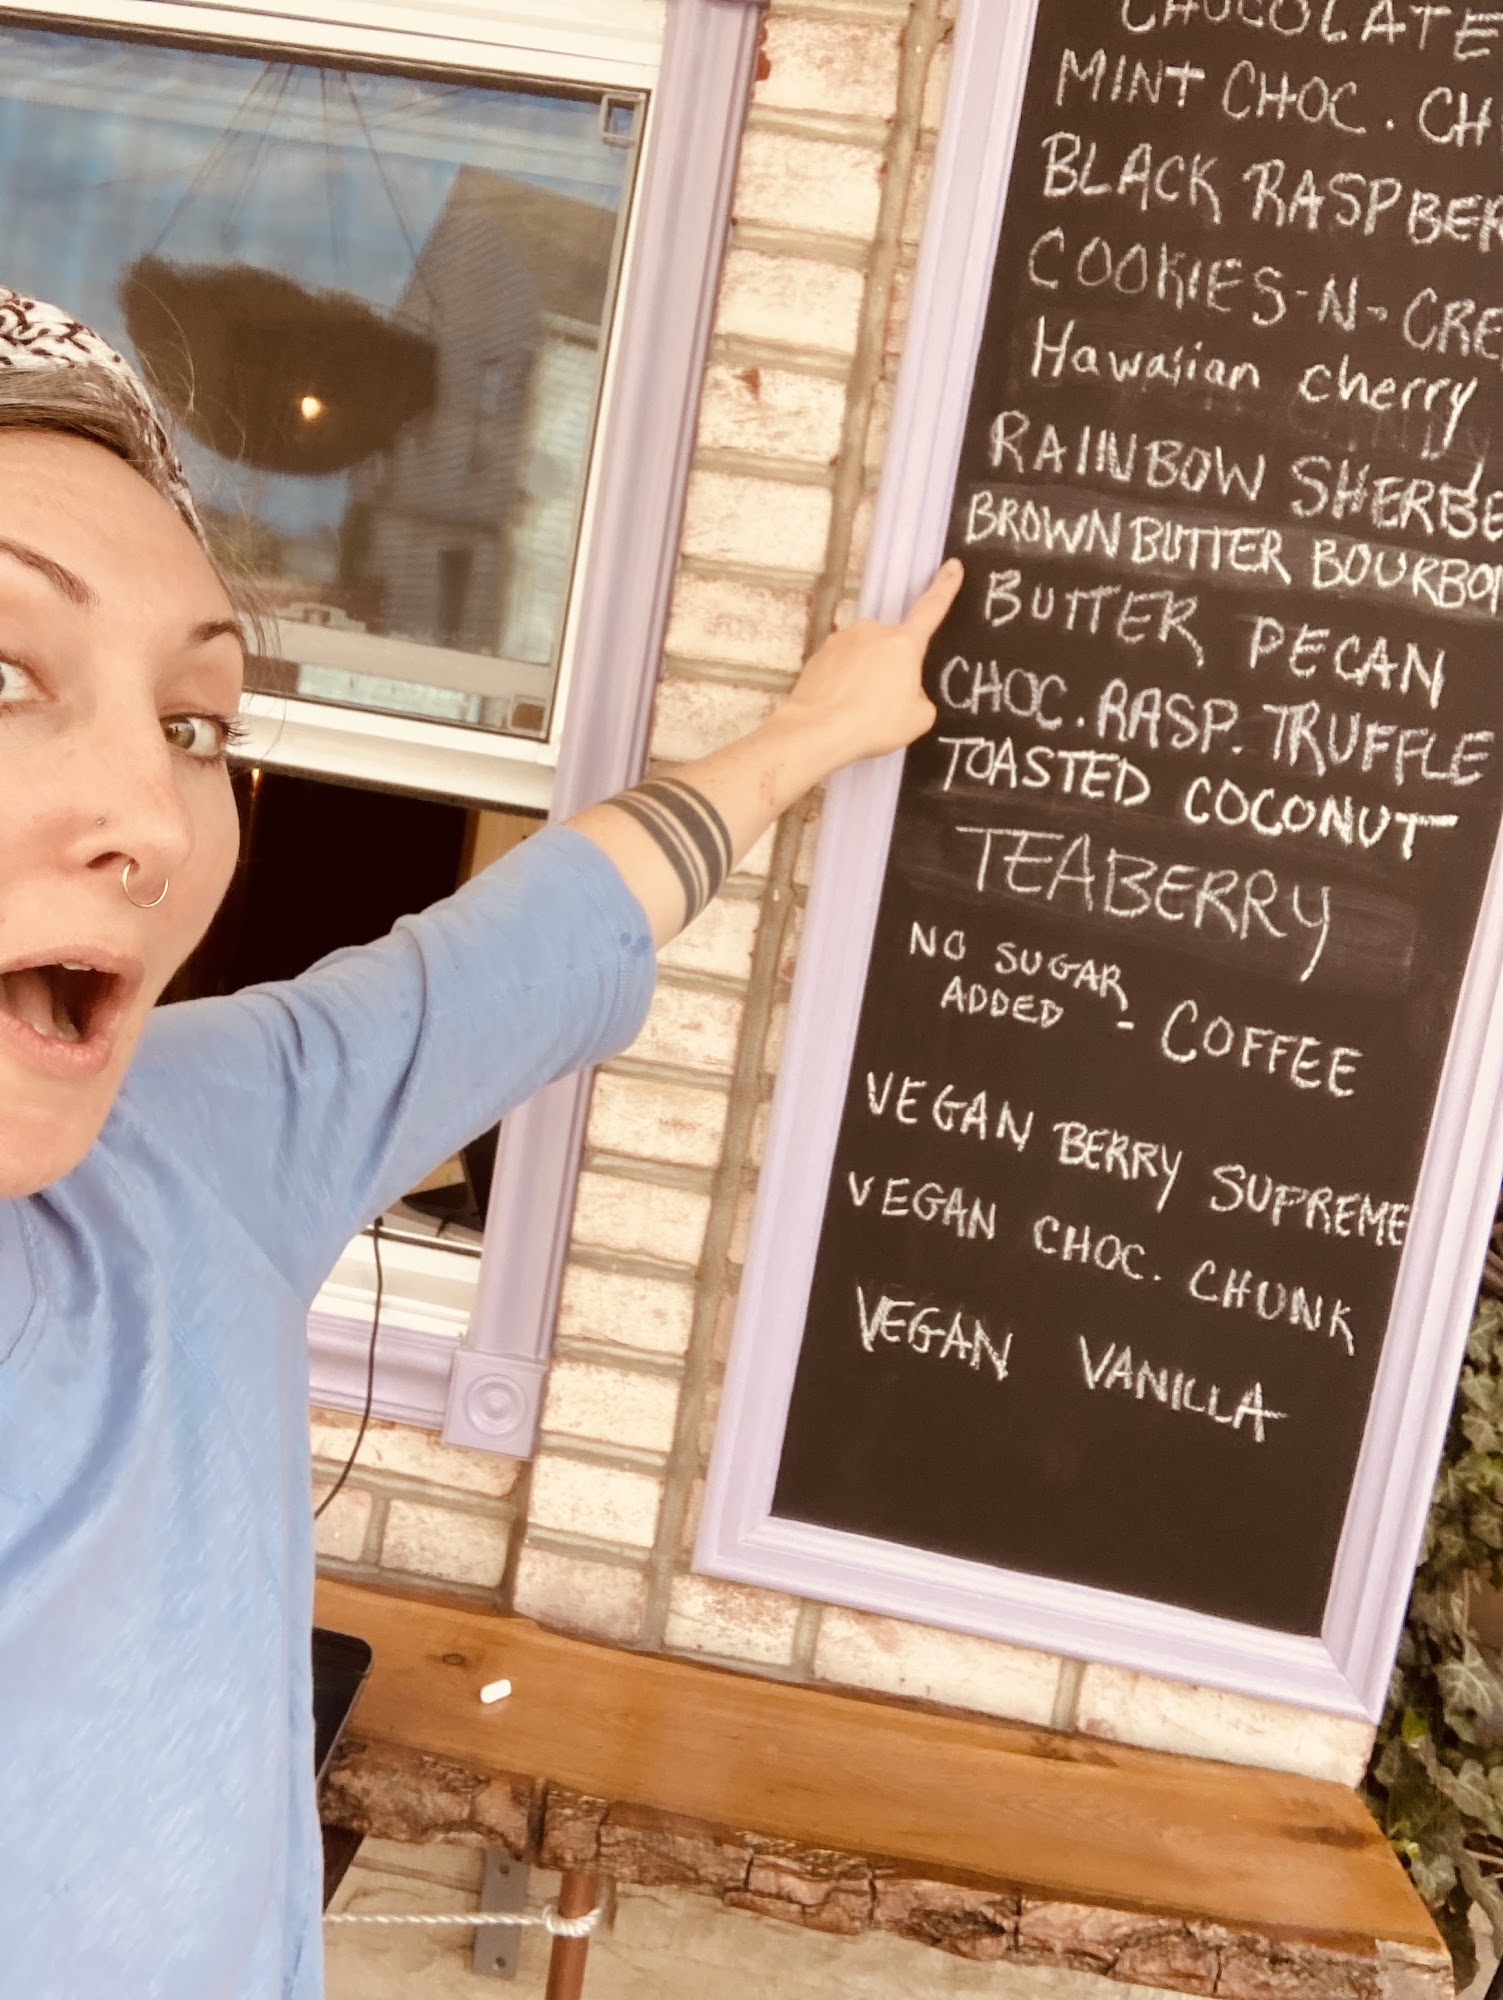 CHOCOLATE
MINT CHOC. CH
BLACK RASPBER
COOKIES-N-CRE
Hawaiian cherry
RAINBOW SHERBE
BROWN BUTTER BOURBON
BUTTER PECAN
CHOC. RASP. TRUFFLE
TOASTED COCONUT
TEABERRY
NO SUGAR
ADDED - COFFEE
VEGAN BERRY SUPREME
VEGAN CHOC. CHUNK
VEGAN VANILLA